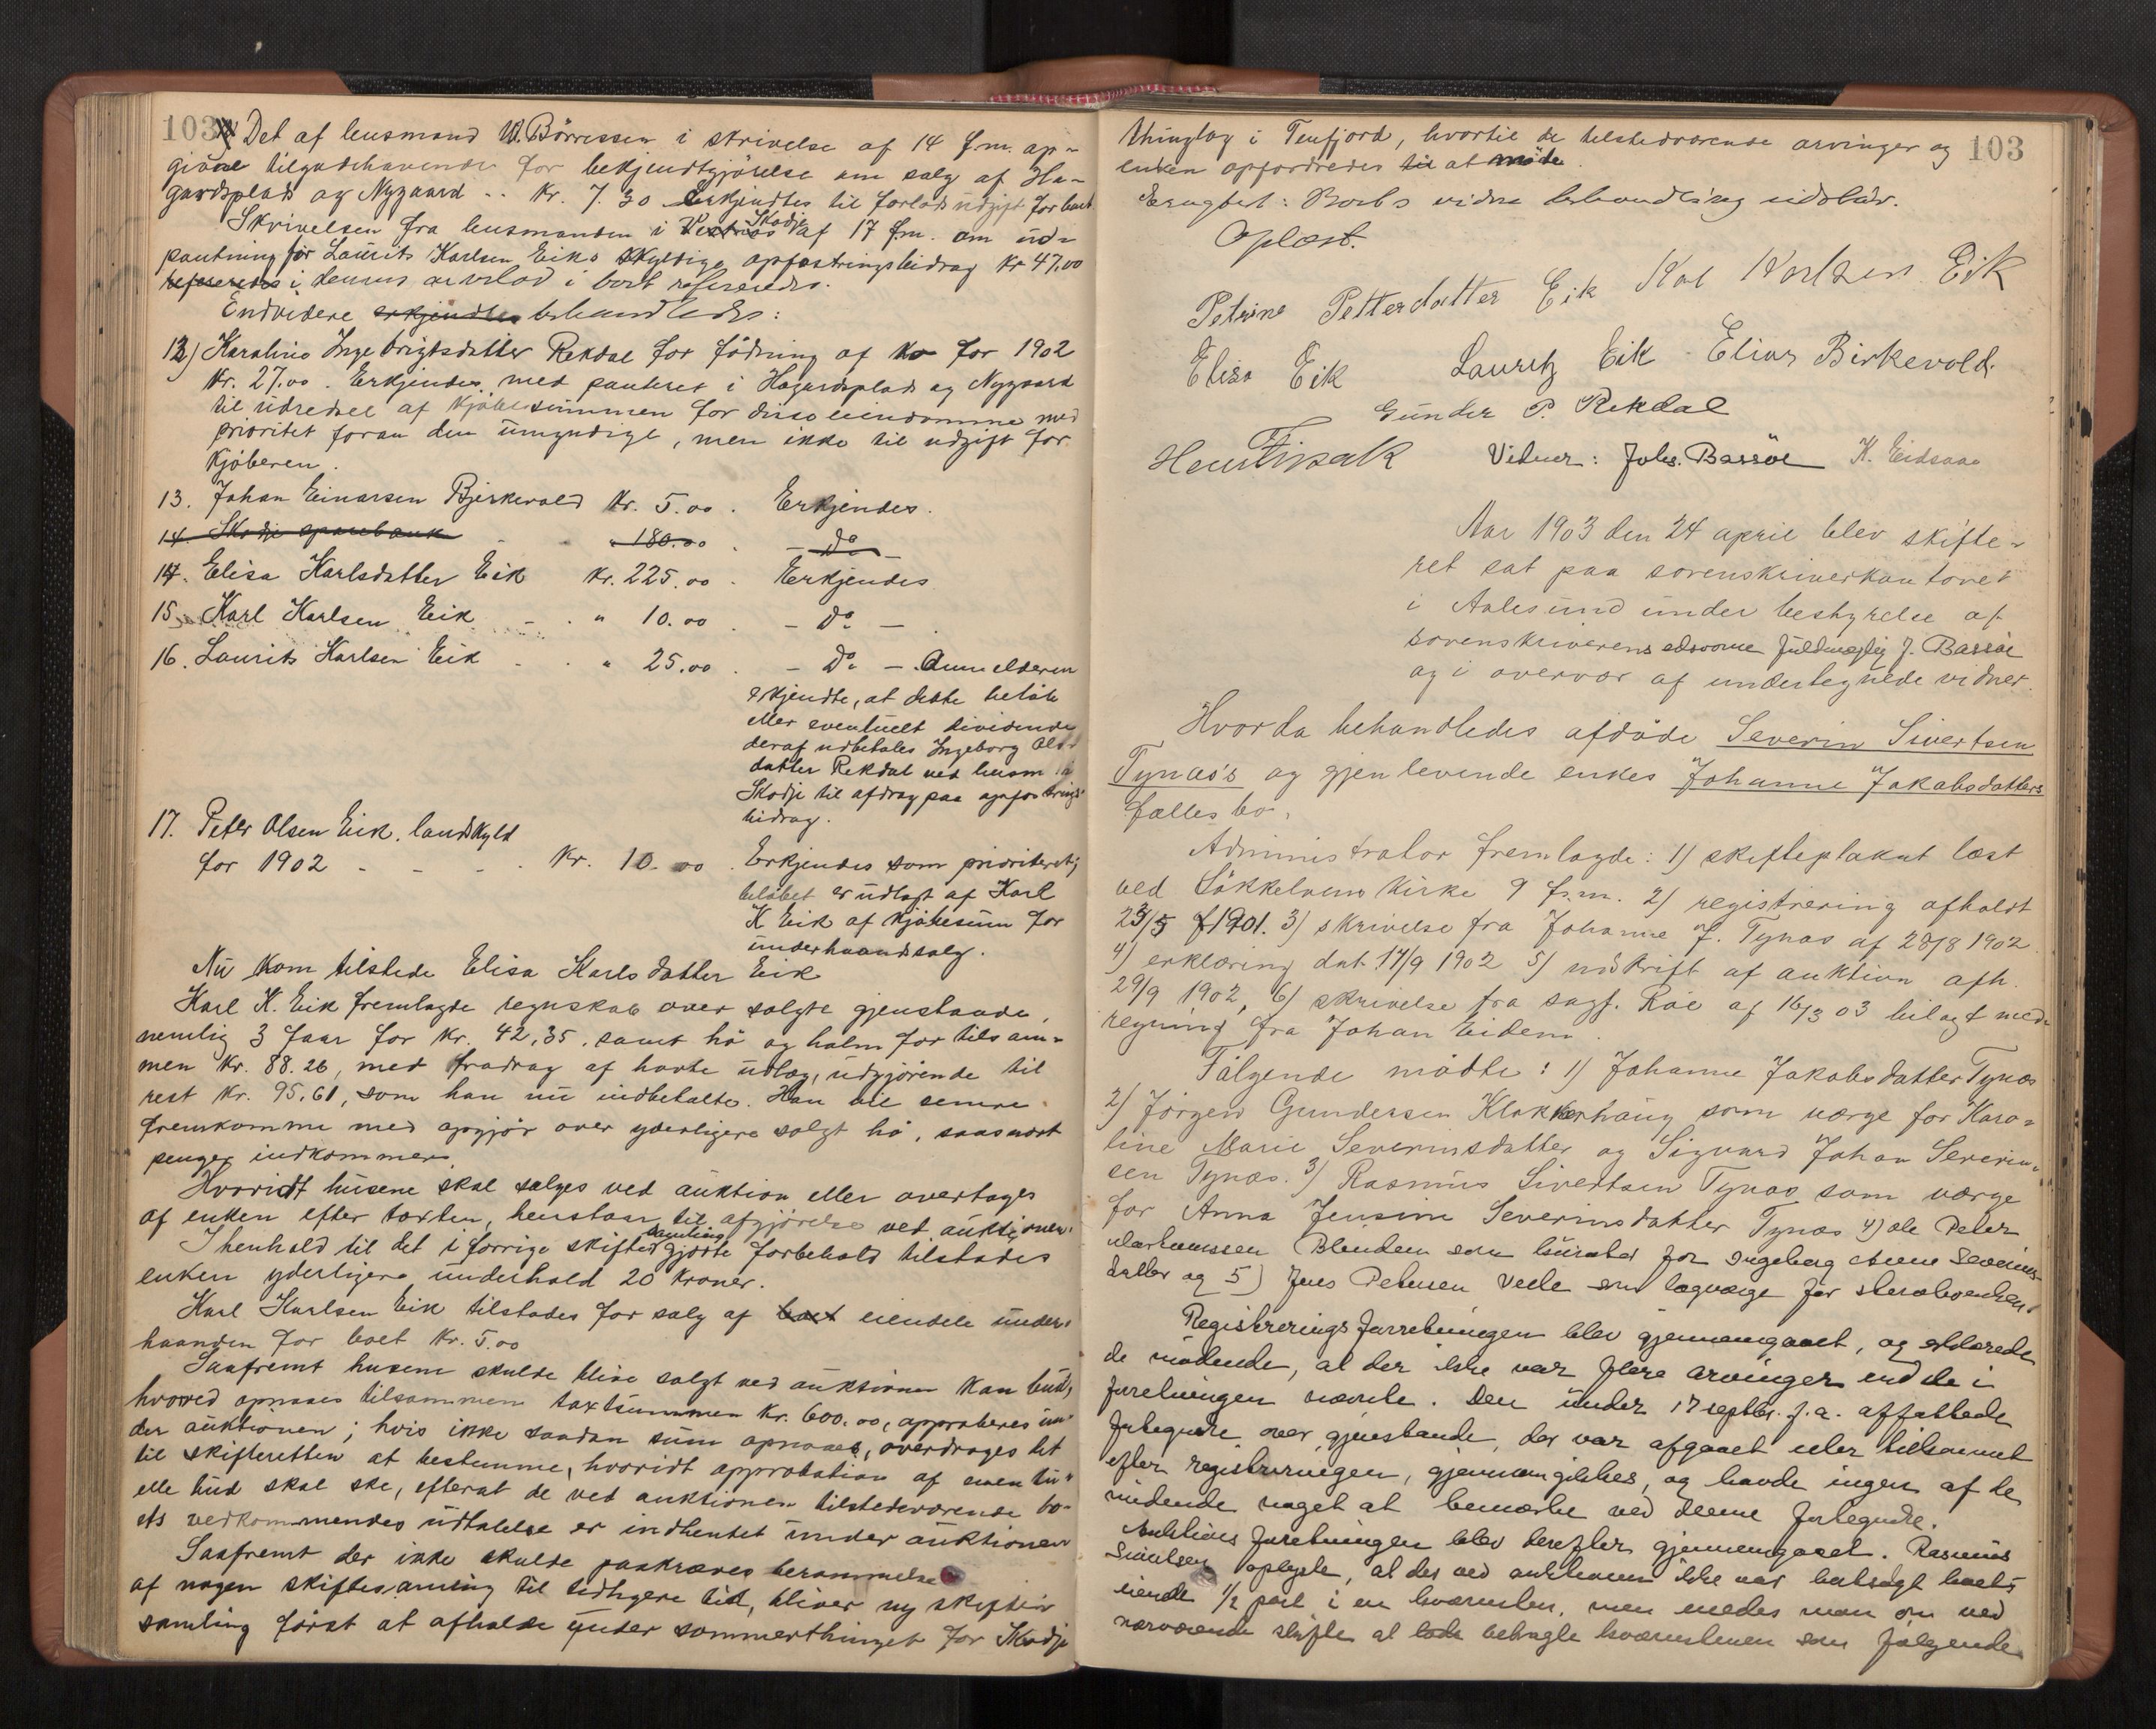 103
Det af lensmand W. Börressen i skrivelse af 14 f.m. op-
givne tilgodehavende for bekjendtgjörelse om salg af Ha-
gardsplads og Nygaard .. Kr. 7.30 Erkjendtes til forlods udgift for boet
Skrivelsen fra lensmanden i Skodje af 17 f.m. om ud-
pantning för Laurits Karlsen Eiks skyldige opfostringsbidrag Kr 47.00
i dennes arvelod i boet refereredes.
Endvidere erkjendtes behandledes:
12) Karoline Ingebrigtsdatter Rekdal for födning af ko for 1902
Kr. 27.00. Erkjendes med panteret i Hagardsplads og Nygaard
til udredsel af kjöbesummen for disse eiendomme med
prioritet foran den umyndige, men ikke til udgift for
Kjöberen.
13. Johan Einarsen Bjerkevold Kr. 5.00. Erkjendes.
14. Skodje sparebank - " 180.00 . - do -
14. Elisa Karlsdatter Eik Kr. 225.00 - Erkjendes
15. Karl Karlsen Eik - . " 10.00 . - do -
16. Laurits Karlsen Eik - . " 25.00 . - do - Anmelderen
erkjendte, at dette belöb
eller eventuelt dividende
deraf udbetales Ingeborg Ols
datter Rekdal ved lensm i
Skodje til afdrag paa opfostrings
bidrag.
17. Peter Olsen Eik, landskyld
for 1902 - - - . Kr. 10.00 . Erkjendes som prioriteret,
belöbet er udlagt af Karl
K Eik af kjöbesum for
underhaandsalg.
Nu kom tilstede Elisa Karlsdatter Eik
Karl K. Eik fremlagde regnskab over solgte gjenstande,
nemlig 3 faar for Kr. 42,35, samt hö og halm for tilsam-
men Kr. 88.26, med fradrag af havte udlæg, udgjörende til
rest Kr. 95.61, som han nu indbetalte. Han vil senere
fremkomme med opgjör over yderligere solgt hö, saasnart
penger indkommer.
Hvoridt husene skal sælges ved auktion eller overtages
af enken efter taxten, henstaar til afgjörelse ved auktionen.
samling
I henhold til det i forrige skifte gjorte forbehold tilstodes
enken yderligere underhold 20 Kroner.
Karl Karlsen Eik tilstodes for salg af boet eiendele under-
haanden for boet Kr. 5.00
Saafremt husene skulde blive solgt ved auktionen kan bud,
hvorved opnaaes tilsammen taxtsummen Kr. 600.00, approberes un-
der auktionen; hvis ikke saadan sum opnaaes, overdrages det
til skifteretten at bestemme, hvoridt approbation af eventu-
elle bud skal ske, efterat de ved auktionen tilstedeværende bo-
ets vedkommendes udtalelse er indhentet under auktionen
Saafremt der ikke skulde paakræves berammelse
af nogen skiftesamling til tidligere tid, bliver ny skifte-
samling först at afholde under sommerthinget for Skodje
103
thinglag i Tenfjord, hvortil de tilstedeværende arvinger og
enken opfordredes til at möde.
Eragtet: Boets videre behandling udstaar.
Oplæst.
Petrine Pettersdatter Eik Karl Karlsen Eik
Elisa Eik Lauritz Eik Elias Birkevold.
Gunder P. Rekdal
Vidner: Johs. Bassöe K. Eidsaae
Aar 1903 den 24 april blev skifte-
ret sat paa sorenskriverkontoret
i Aalesund under bestyrelse af
sorenskriverens edsvorne fuldmægtig J. Bassöe
og i overvær af undertegnede vidner.
Hvorda behandledes afdöde Severin Sivertsen
Tynæs's og gjenlevende enkes Johanne Jakobsdatters
fælles bo.
Administrator fremlagde: 1) skifteplakat læst
ved Sökkelvens Kirke 9 f.m. 2) registrering afholdt
23/5 1901. 3) skrivelse fra Johanne J. Tynæs af 28/8 1902
4) erklæring dat. 17/9 1902 5) udskrift af auktion afh.
29/9 1902, 6) skrivelse fra sagf. Röe af 16/3 03 bilagt med
regning fra Johan Eidem.
Fölgende mödte: 1) Johanne Jakobsdatter Tynæs
2) Jörgen Gundersen Klokkerhaug som værge for Karo-
line Marie Severinsdatter og Sigvard Johan Severin-
sen Tynæs. 3) Rasmus Sivertsen Tynæs som værge
for Anna Jensine Severinsdatter Tynæs 4) Ole Peter
Blindem som kurator for Ingeborg Anne Severins-
datter og 5) Jens Petersen Velle som lagværge for sterboenken.
Registreringsforretningen blev gjennemgaaet, og erklærede
de mödende, at der ikke var flere arvinger end de i
forretningen nævnte. Den under 17 septbr. f.a. affattede
fortegnelse over gjenstande, der var afgaaet eller tilkommet
efter registreringen, gjennemgikkes, og havde ingen af de
mödende noget at bemærke ved denne fortegnelse.
Auktionsforretningen blev derefter gjennemgaaet. Rasmus
Sivertsen oplyste, at der ved auktionen ikke var bortsolgt boets
eiende 1/2 part i en kværnsten, men enedes man om ved
nærværende skifte at lade betragte kværnstenen som fölgende